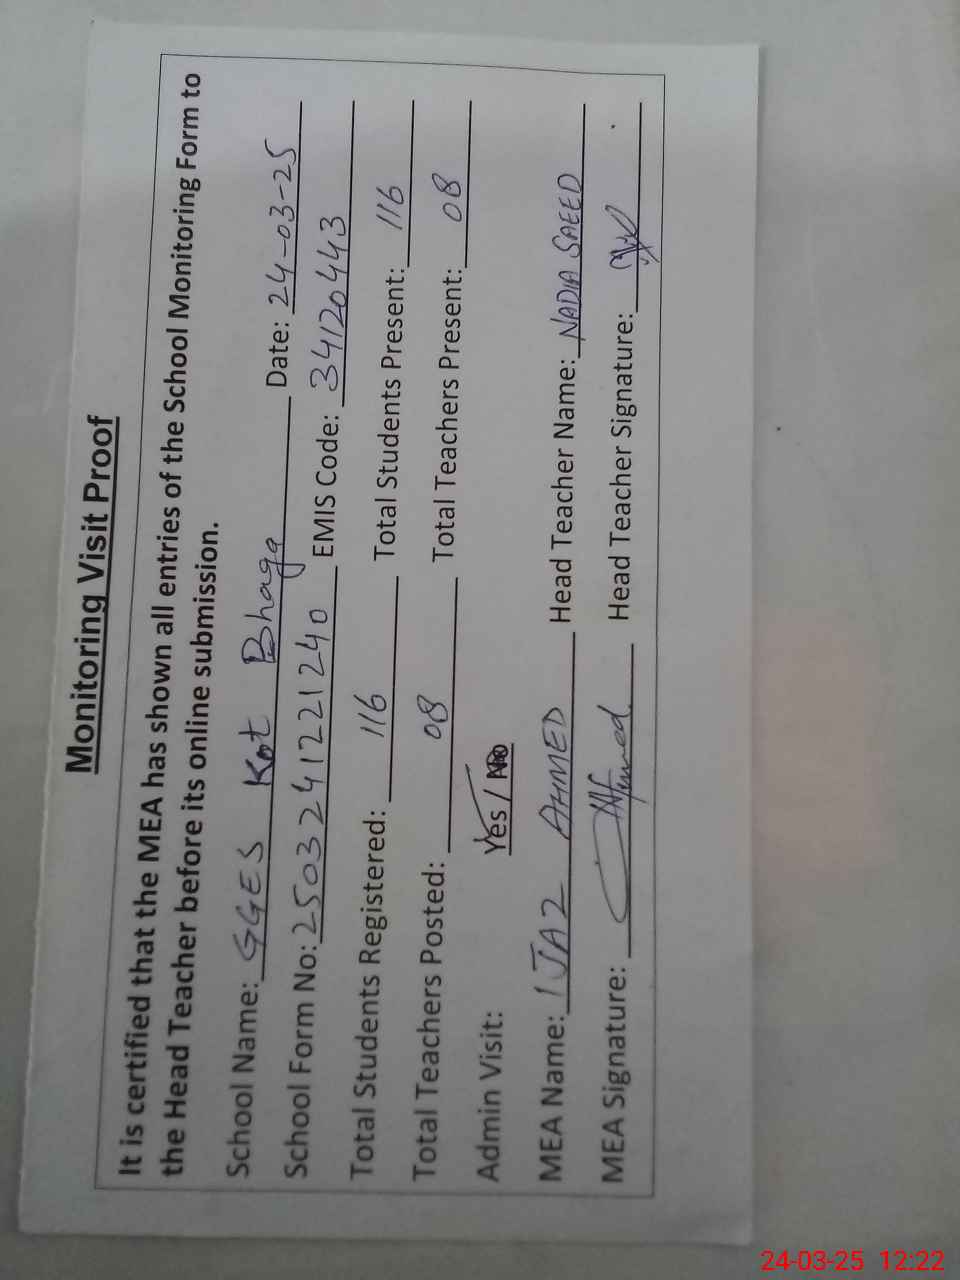 Monitoring Visit Proof
It is certified that the MEA has shown all entries of the School Monitoring Form to
the Head Teacher before its online submission.
School Name: GGES Kot Bhaga Date: 24-03-25
School Form No: 2503241221240 EMIS Code: 34120443
Total Students Registered: 116 Total Students Present: 116
Total Teachers Posted: 08 Total Teachers Present: 08
Admin Visit: Yes / No
MEA Name: IJAZ AHMED Head Teacher Name: NADIA SAEED
MEA Signature: Head Teacher Signature:
24-03-25 12:22